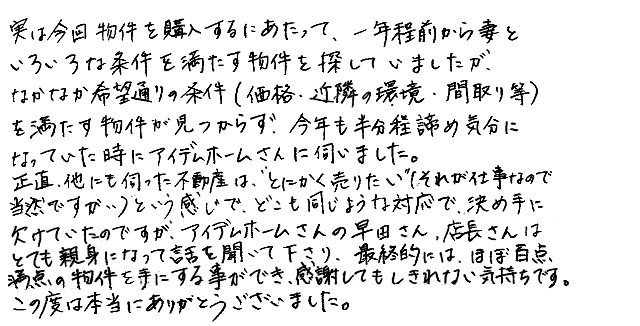 実は今回物件を購入するにあたって、一年程前から妻と
いろいろな条件を満たす物件を探していましたが、
なかなか希望通りの条件(価格・近隣の環境・間取り等)
を満たす物件が見つからず、今年も半分程諦め気分に
なっていた時にアイデムホームさんに伺いました。
正直、他にも伺った不動産は、"とにかく売りたい"(それが仕事なので
当然ですが…)という感じで、どこも同じような対応で、決め手に
欠けていたのですが、アイデムホームさんの早田さん、店長さんは
とても親身になって話を聞いて下さり、最終的には、ほぼ百点
満点の物件を手にする事ができ、感謝してもしきれない気持ちです。
この度は本当にありがとうございました。